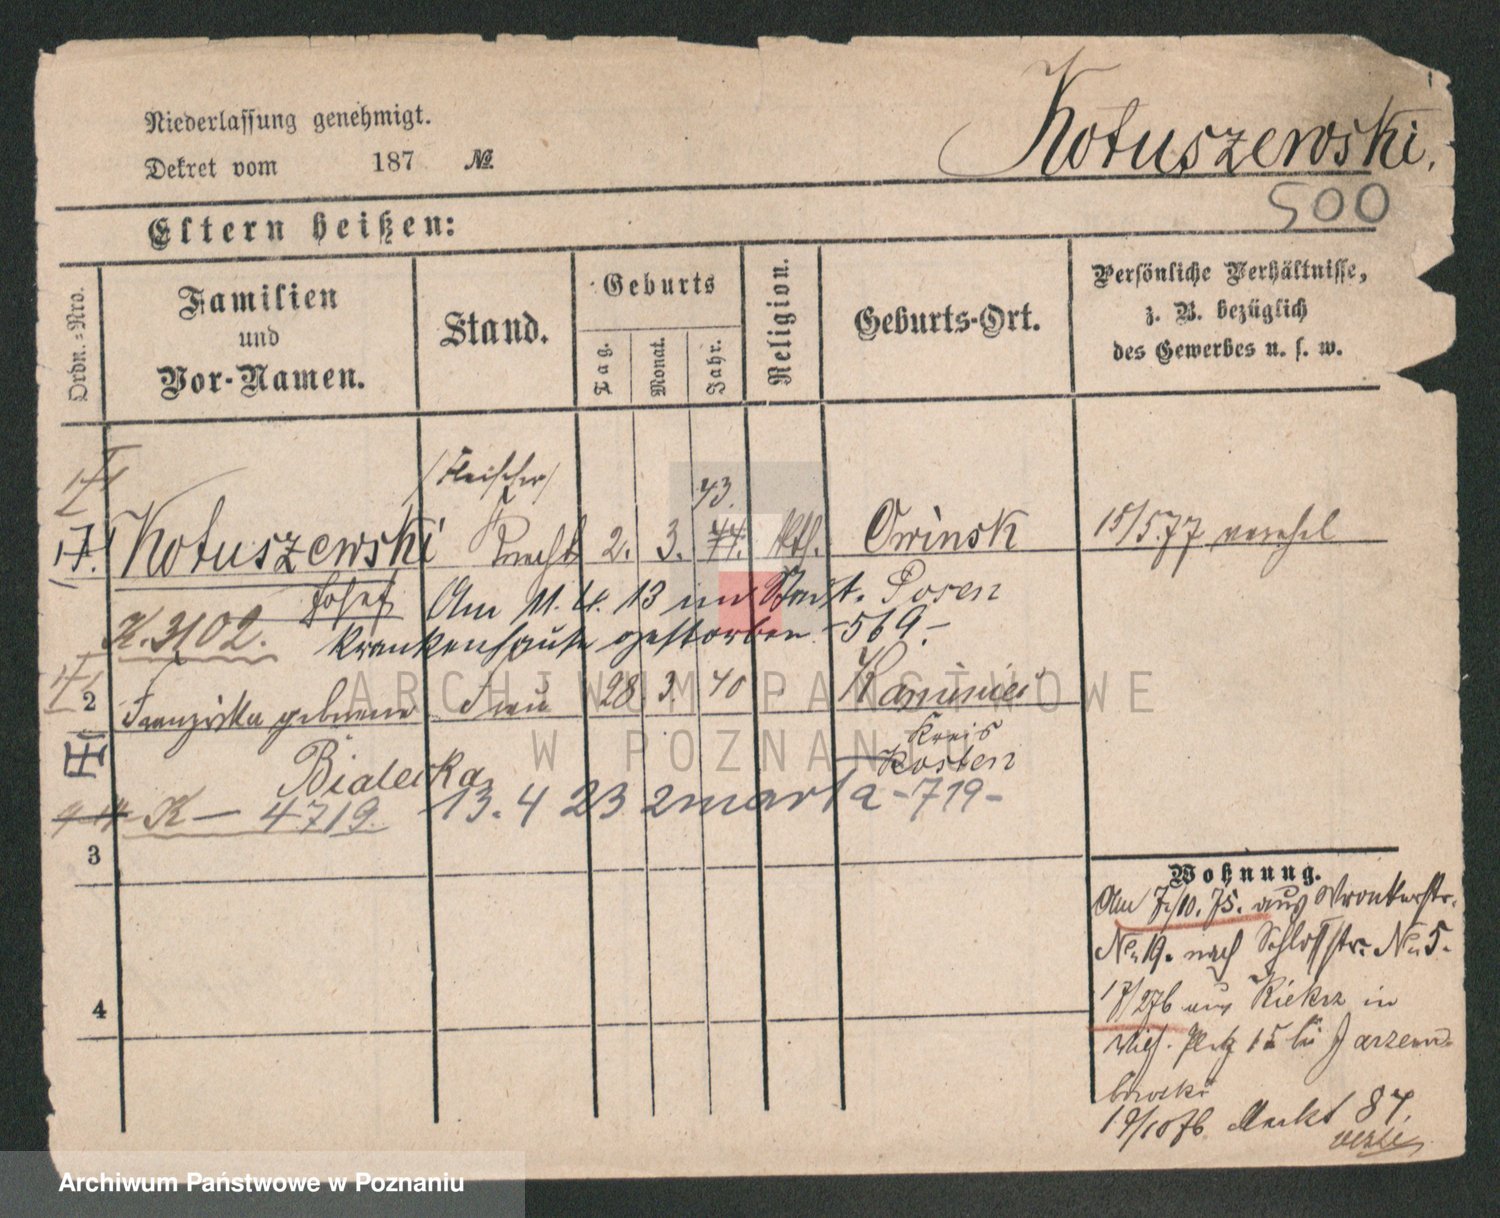 Niederlassung genehmigt.
Kotuszewski.
Dekret vom 187 №
500
Eltern heißen:
Ordn.-Nro.
Familien und Vor-Namen.
Stand.
Geburts
Tag.
Monat.
Jahr.
Religion.
Geburts-Ort.
Persönliche Verhältnisse,
z. B. bezüglich
des Gewerbes u. s. w.
/Fleischer/
73.
Kotuszewski Knecht 2. 3. 44. kth. Owinsk 15/5.77 verehel
Josef Am 11. 4. 13 im Stadt. Posen
K. 3102. Krankenhause gestorben - 569.-
2 Franziska geborene Frau 28 3. 40 Kamieniec
Kreis
Bialecka Kosten
K - 4719. 13. 4 23 zmarła - 719 -
3
Wohnung.
Am 7/10. 75. aus Wronkerstr.
No 19. nach Schloßstr. No 5.
17/2 76 aus Kiekrz in
Platz 15 bei Jarzem-
bowski
19/10 76 Markt 87.
4
ARCHIWUM PAŃSTWOWE
W POZNANIU
Archiwum Państwowe w Poznaniu